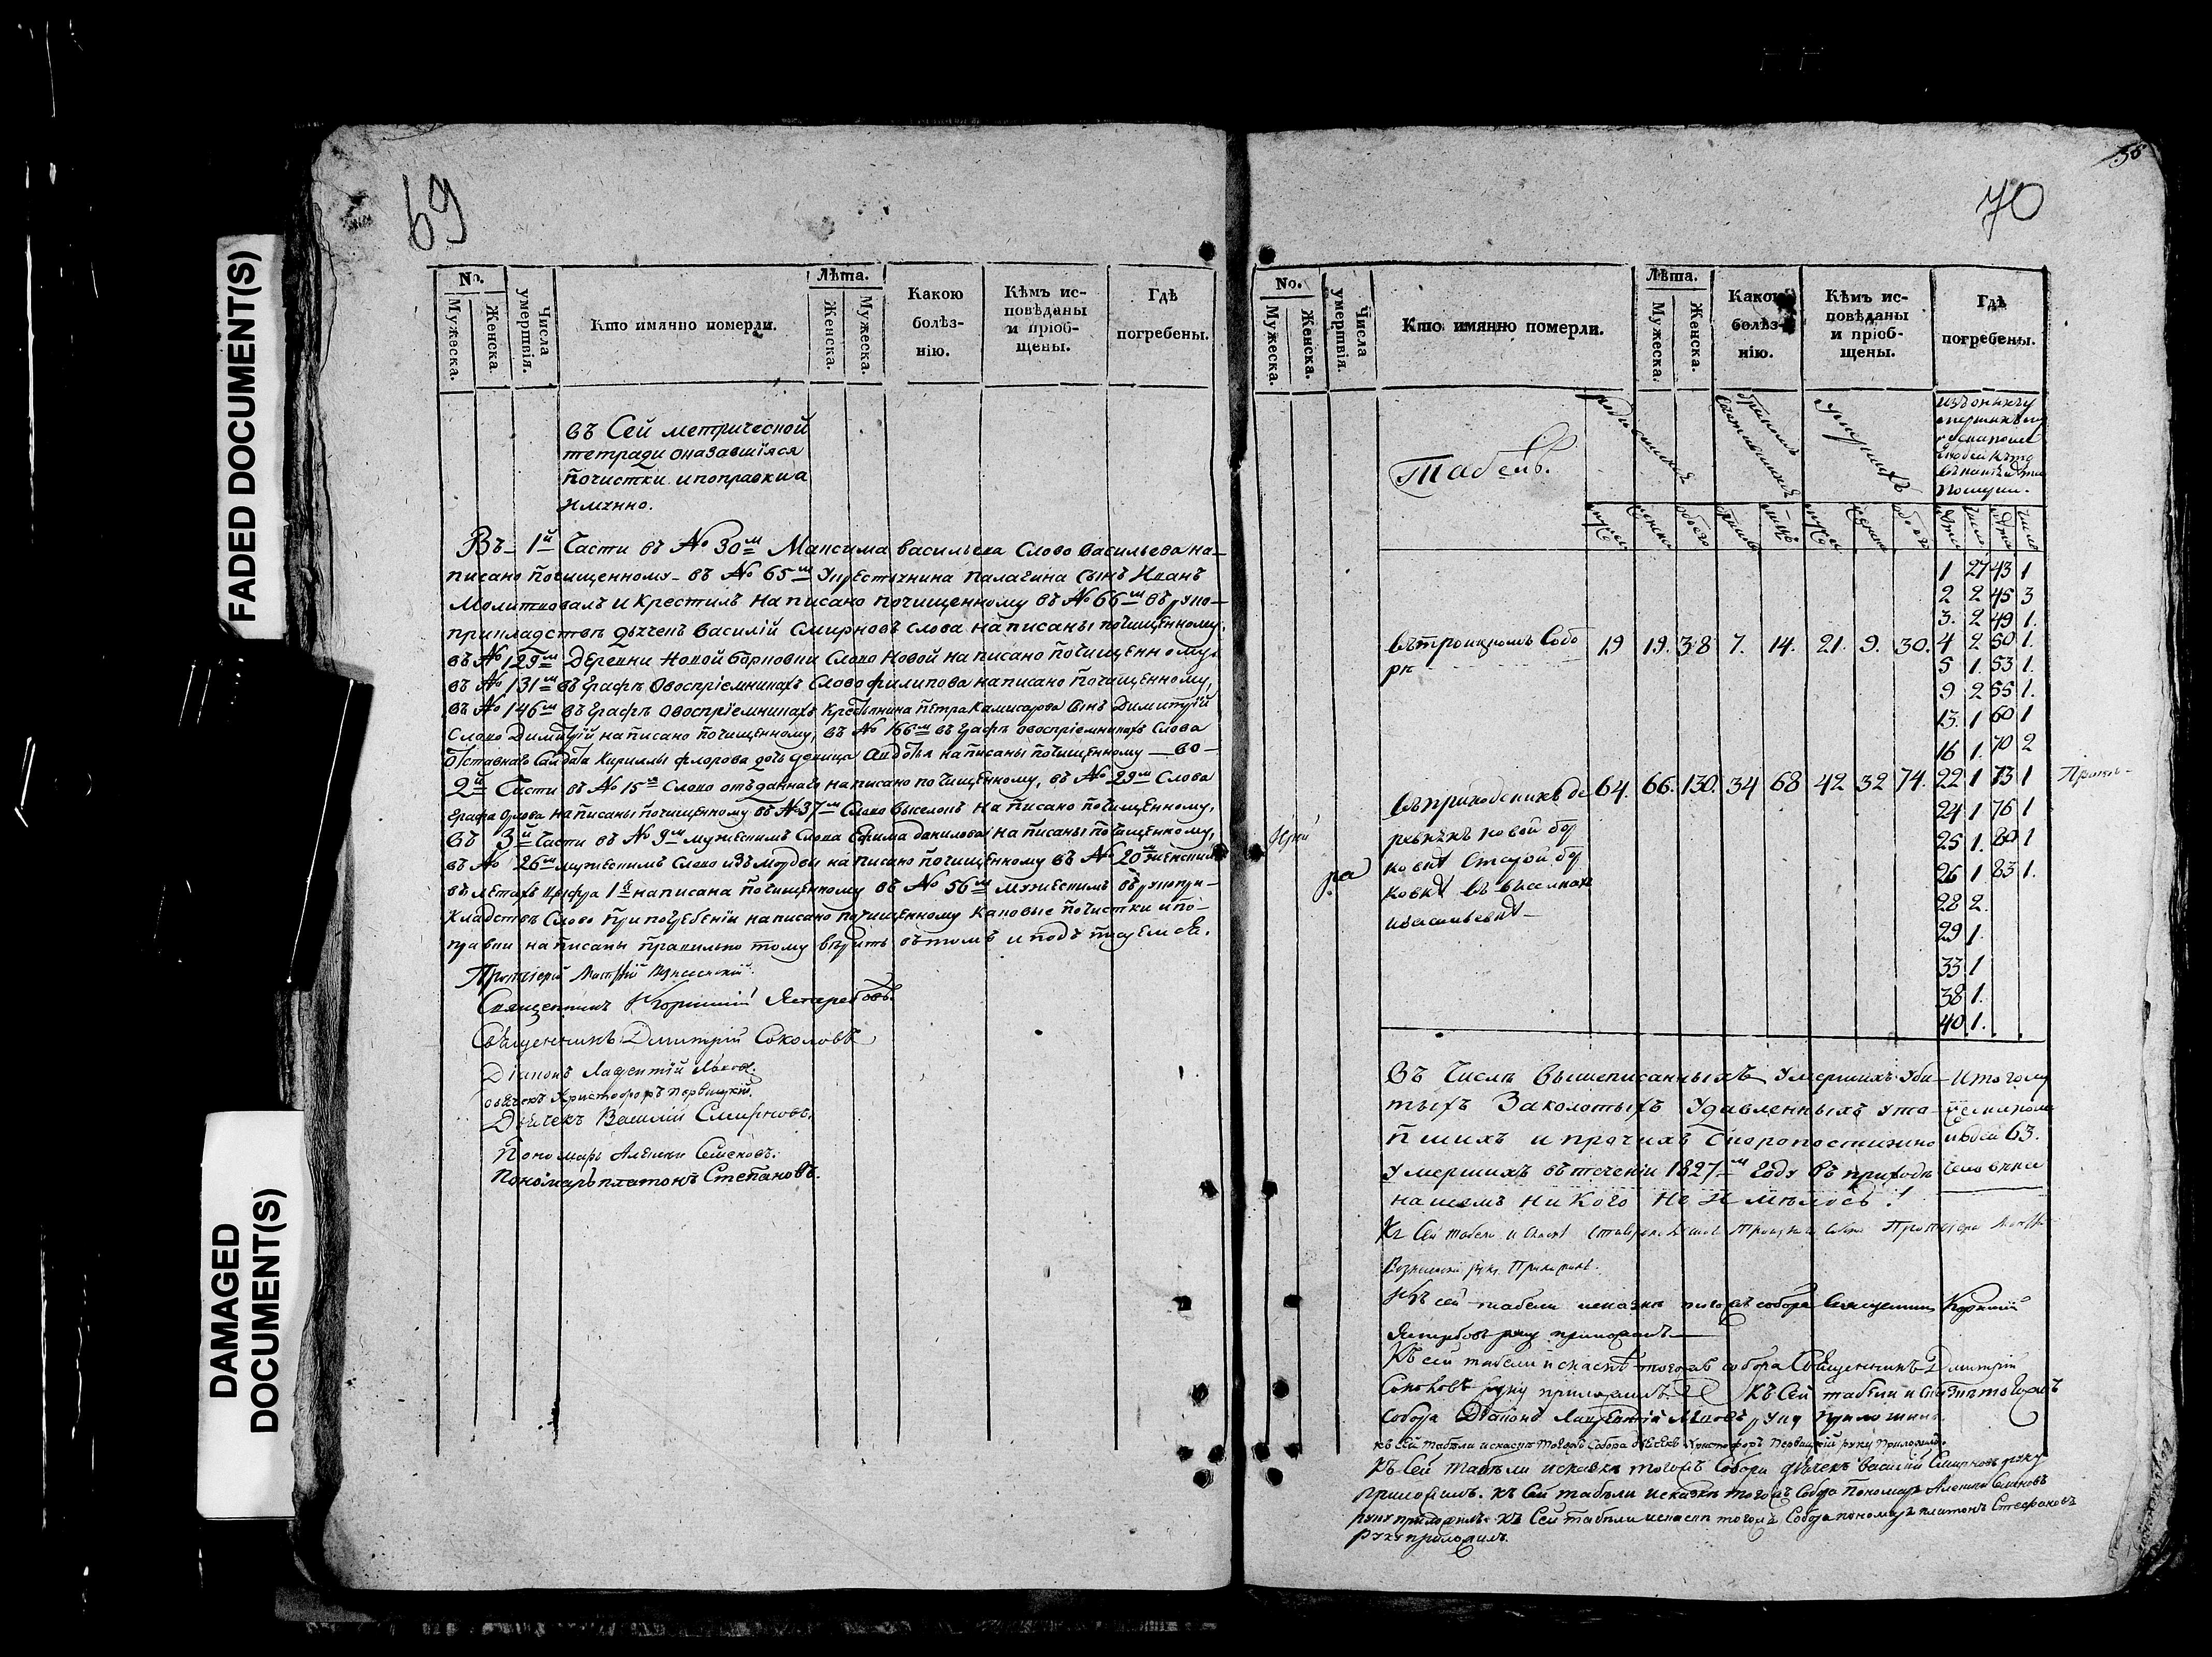 FADED DOCUMENT(S)
DAMAGED
DOCUMENT(S)
69
No.
Мужеска.
Женска.
Числа
умертвія.
Кто имянно померли.
Лѣта.
Женска.
Мужеска.
Какою
болѣз-
нію.
Кѣмъ ис-
повѣданы
и пріоб-
щены.
Гдѣ
погребены.
въ Сей метрической
тетради оказавшіяся
почистки и поправки а
имянно.
Въ 1й Части въ № 30м Максима васильева Слово васильева на-
писано почищенному въ № 65м Сынъ Иванъ
Молитвовалъ и Крестилъ написано почищенному въ № 66м въ руко-
прикладствѣ дьячекъ Василій Смирновъ слова написаны почищенному,
въ № 129м Деревни Новой Слово Новой написано почищенному,
въ № 131м въ Графѣ Овоспріемникахъ Слово филипова написано почищенному,
въ № 146м въ Графѣ Овоспріемникахъ Крестьянина Петра Камисарова Сынъ Димитрій
Слово Димитрій написано почищенному, въ № 166м въ Графѣ овоспріемникахъ Слова
Отставнаго Салдата Кириллы флорова дочь девица написаны почищенному во
2й Части въ № 15м Слово отъданнаго написано почищенному, въ № 29м Слова
Графа Орлова написаны почищенному въ № 37м Слово написано почищенному,
Въ 3й Части въ № 9м мужескимъ Слова Ефима данилова написаны почищенному,
въ № 26м мужескимъ Слово написано почищенному въ № 20м женскимъ
въ летахъ Цифра 1 написана почищенному въ № 56м мужескимъ въ рукопри-
кладствѣ Слово При погребеніи написано почищенному Каковые почистки и по-
правки написаны правильно тому верить въ томъ и подъписуемся.
Протоіерей Вознесенскій
Священникъ Ястребовъ.
Священникъ Димитрій Соколовъ
Діаконъ Лаврентій
дьячекъ Христофоръ
Дьячекъ Василій Смирновъ.
Пономарь Алексѣй Семеновъ.
Пономарь платонъ Степановъ.
70
No.
Мужеска.
Женска.
Числа
умертвія.
Кто имянно померли.
Лѣта.
Мужеска.
Женска.
Какою
болѣз-
нію.
Кѣмъ ис-
повѣданы
и пріоб-
щены.
Гдѣ
погребены.
Табель.
родившихся
бракомъ
сочетавшихся
умершихъ
въ троицкомъ Собо
рѣ
19 19. 38 7. 14. 21. 9. 30.
въ приходскихъ де
64. 66. 130. 34 68 42 32 74.
ревняхъ новой бор
ковки Старой бор
ковки въ выселкахъ
1 27 43 1
2 2 45 3
3. 2 49 1.
4 2 50 1.
5 1 53 1.
9 2 55 1.
13. 1 60 1
16 1. 70 2
22 1 73 1
24 1 76 1
25 1. 80 1
26 1 83 1.
28 2.
29 1.
33 1
38 1.
40 1.
Въ Числѣ вышеписанныхъ Умершихъ Уби-
тыхъ Заколотыхъ Удавленныхъ Уто-
пшихъ и прочихъ Скоропостижно
Умершихъ въ теченіи 1827м Году въ приходѣ
нашемъ ни Кого Не Имѣлось.
Итого му
жеска пола
людей 63.
человека
Къ Сей табели и Троицкаго Собора Протоіерей
Вознесенскій руку Приложилъ.
Къ сей табели и сказкѣ тогожъ собора Священникъ
Ястребовъ руку приложилъ
Къ сей табели и сказкѣ тогожъ собора Священникъ Дмитрій
Соколовъ руку приложилъ. Къ Сей табели и сказкѣ тогожъ
Собора Діаконъ Лаврентій руку приложилъ.
къ сей табели и сказкѣ тогожъ Собора дьячекъ Христофоръ руку приложилъ.
Къ Сей табели и сказкѣ тогожъ Собора дьячекъ василій Смирновъ руку
приложилъ. Къ Сей табели и сказкѣ тогожъ Собора Пономарь Алексѣй Семеновъ
руку приложилъ. Къ Сей табели и сказкѣ тогожъ Собора пономарь платонъ Стефановъ
руку приложилъ.